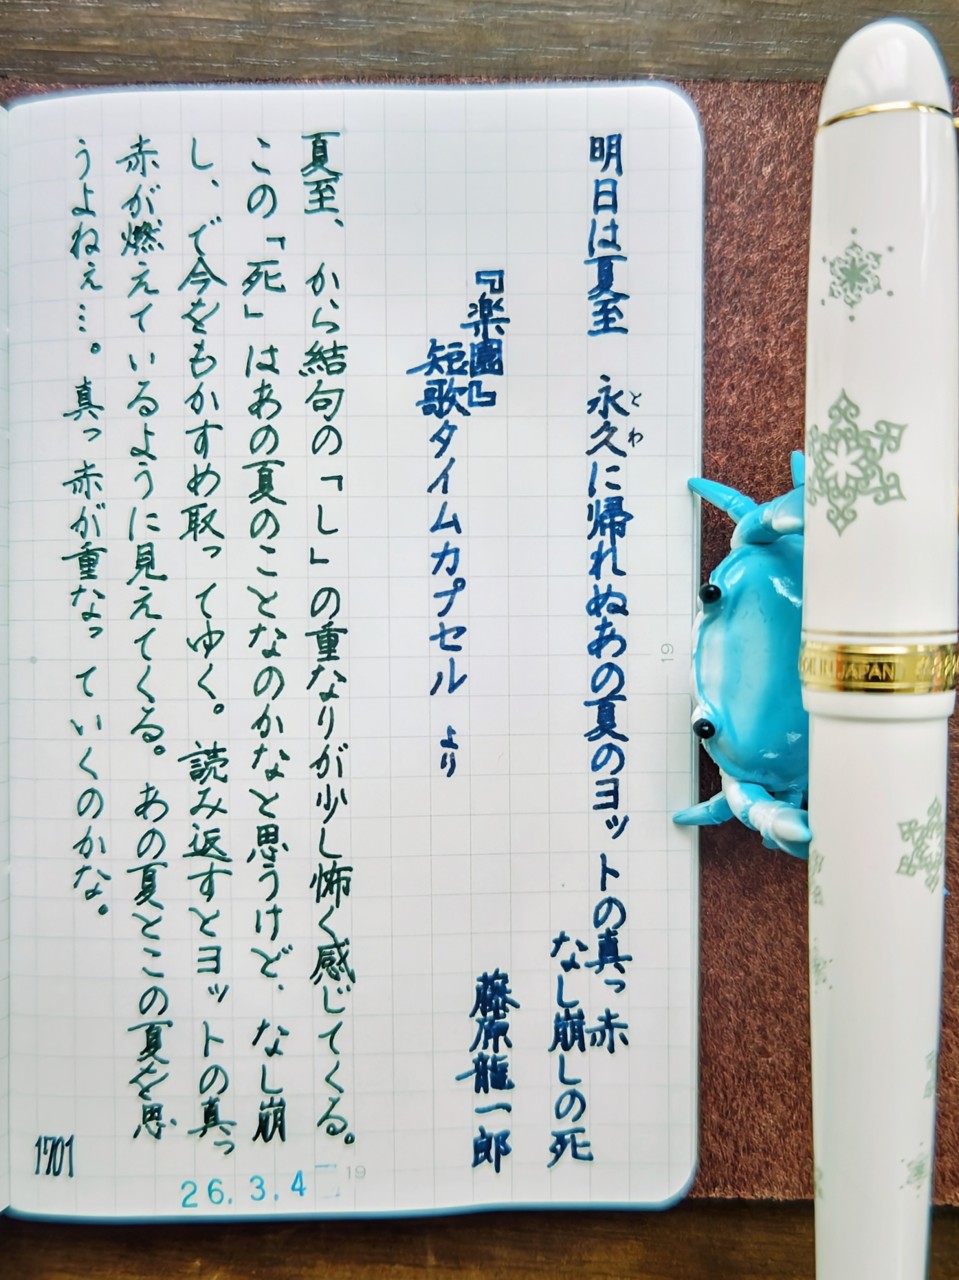 明日は夏至　永久に帰れぬあの夏のヨットの真っ赤
とわ
なし崩しの死
藤原龍一郎
『楽園』
短歌タイムカプセル　より
夏至、から結句の「し」の重なりが少し怖く感じてくる。
この「死」はあの夏のことなのかなと思うけど、なし崩
し、で今をもかすめ取ってゆく。読み返すとヨットの真っ
赤が燃えているように見えてくる。あの夏とこの夏を思
うよねぇ…。真っ赤が重なっていくのかな。
1701
26.3.4
19
19
IN JAPAN